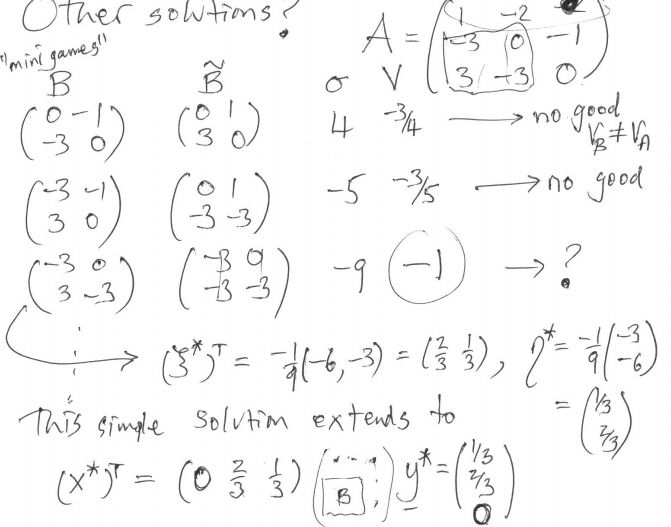 Other solutions?
"mini games"
A = ( 1 -2
-3 0 -1
3 -3 0 )
B B̃ σ V
( 0 -1
-3 0 ) ( 0 1
3 0 ) 4 -3/4 → no good
V_B ≠ V_A
( -3 -1
3 0 ) ( 0 1
-3 -3 ) -5 -3/5 → no good
( -3 0
3 -3 ) ( -3 0
-3 -3 ) -9 -1 → ?
(ξ*)ᵀ = -1/9 (-6, -3) = (2/3 1/3), η* = -1/9 ( -3
-6 )
= ( 1/3
2/3 )
This simple solution extends to
(x*)ᵀ = (0 2/3 1/3) ( B ) y* = ( 1/3
2/3
0 )